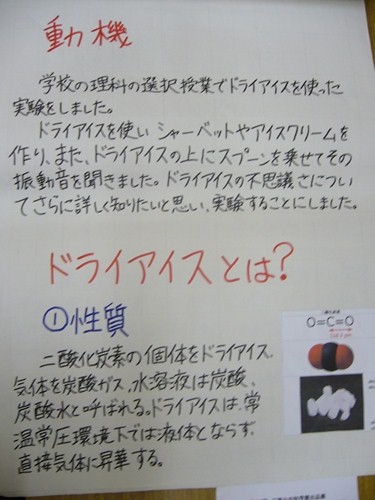 動機
学校の理科の選択授業でドライアイスを使った
実験をしました。
ドライアイスを使い シャーベットやアイスクリームを
作り、また、ドライアイスの上にスプーンを乗せてその
振動音を聞きました。ドライアイスの不思議さについ
てさらに詳しく知りたいと思い、実験することにしました。
ドライアイスとは?
①性質
二酸化炭素の個体をドライアイス、
気体を炭酸ガス、水溶液は炭酸、
炭酸水と呼ばれる。ドライアイスは、常
温常圧環境下では液体とならず、
直接気体に昇華する。
O=C=O